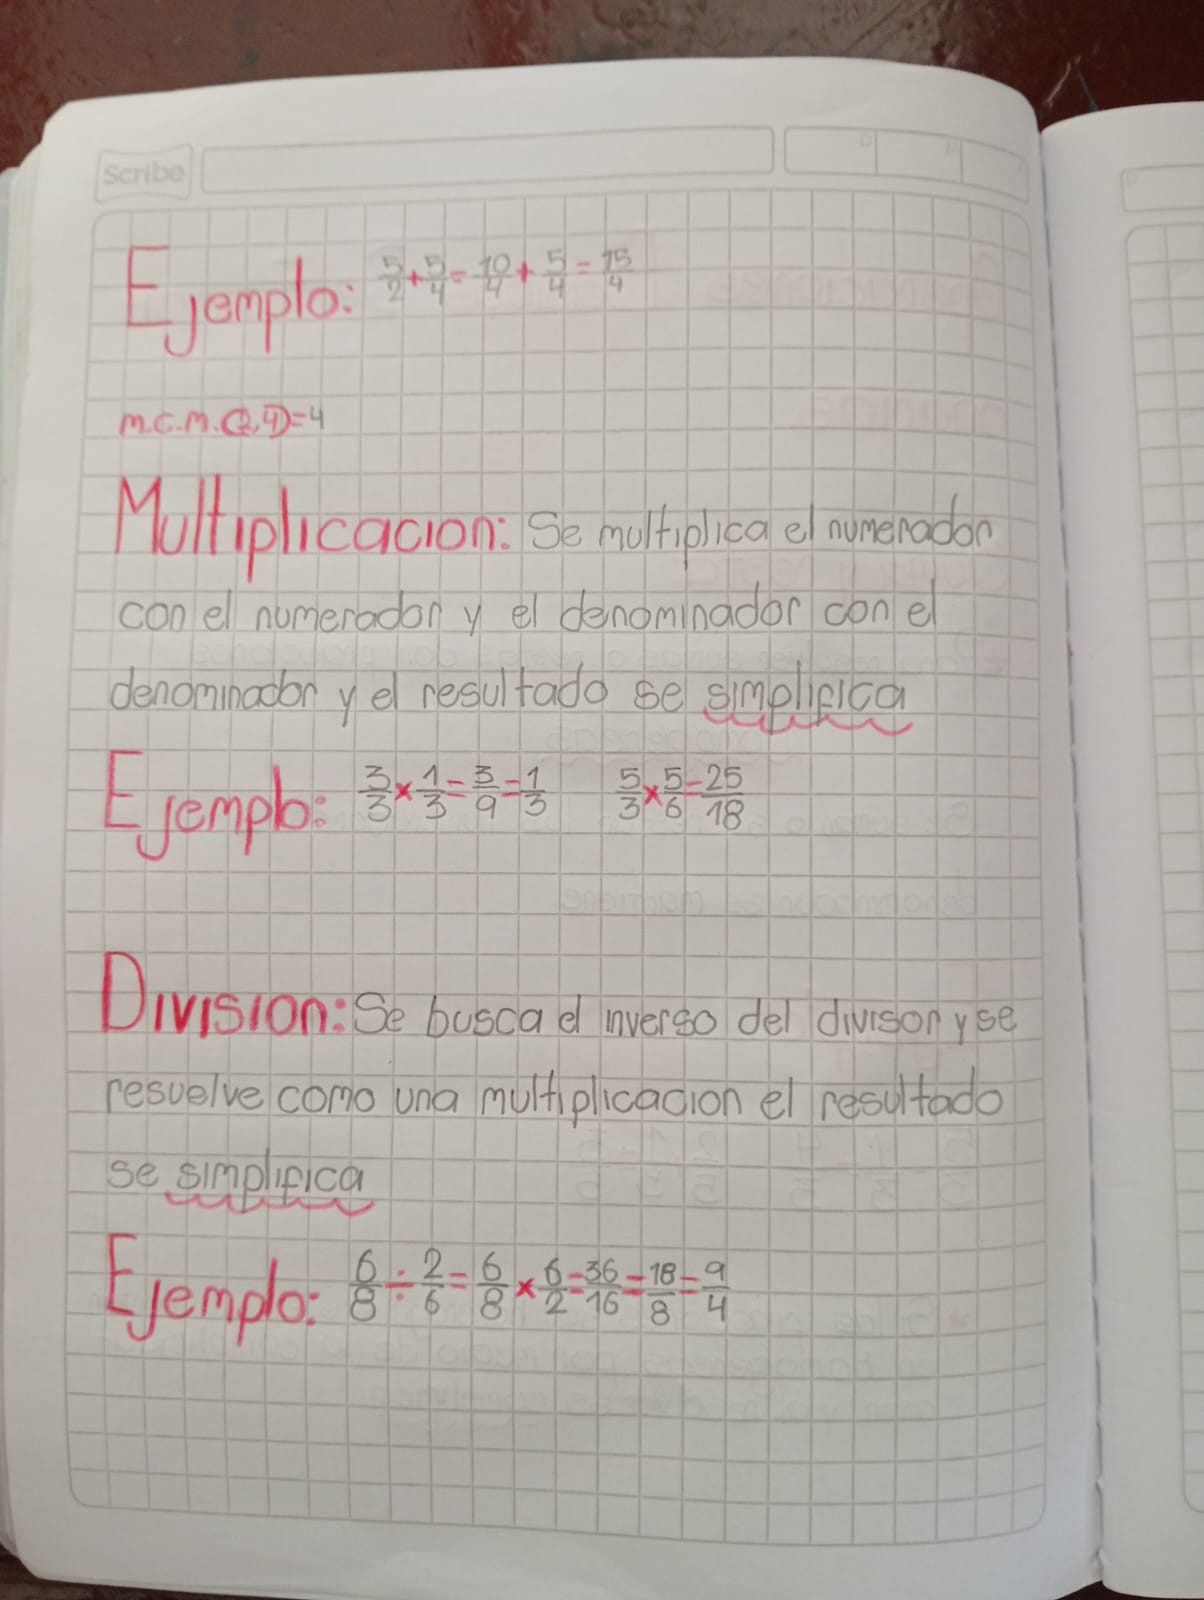 Scribe
Ejemplo: 5/2 + 5/4 = 10/4 + 5/4 = 15/4
m.c.m.(2,4)=4
Multiplicacion: Se multiplica el numerador
con el numerador y el denominador con el
denominador y el resultado se simplifica
Ejemplo: 3/3 × 1/3 = 3/9 = 1/3 5/3 × 5/6 = 25/18
Division: Se busca el inverso del divisor y se
resuelve como una multiplicacion el resultado
se simplifica
Ejemplo: 6/8 ÷ 2/6 = 6/8 × 6/2 = 36/16 = 18/8 = 9/4